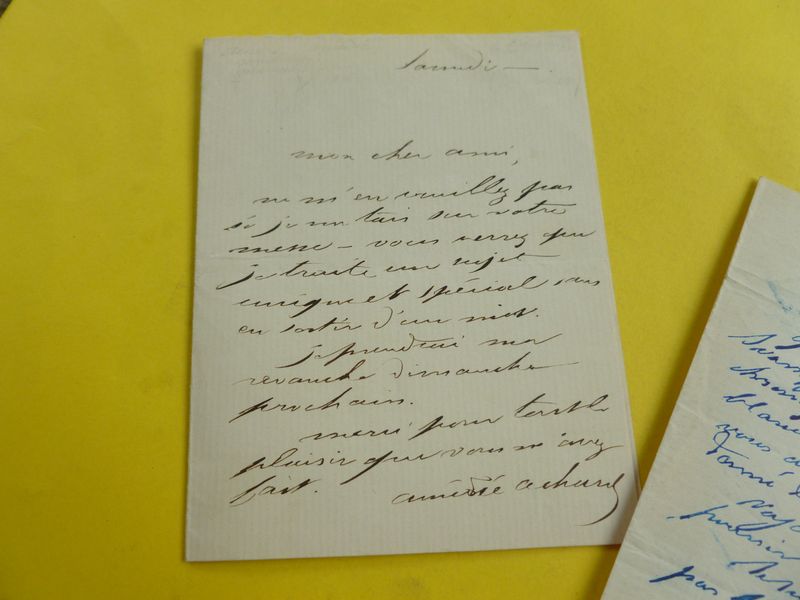 Samedi —
mon cher ami,
ne m'en veuillez pas
si je me tais sur votre
messe – vous verrez que
je traite un sujet
unique et spécial sans
en sortir d'un mot.
je prendrai ma
revanche dimanche
prochain.
merci pour tout le
plaisir que vous m'avez
fait.
amédée achard
blanc
vous a
pas